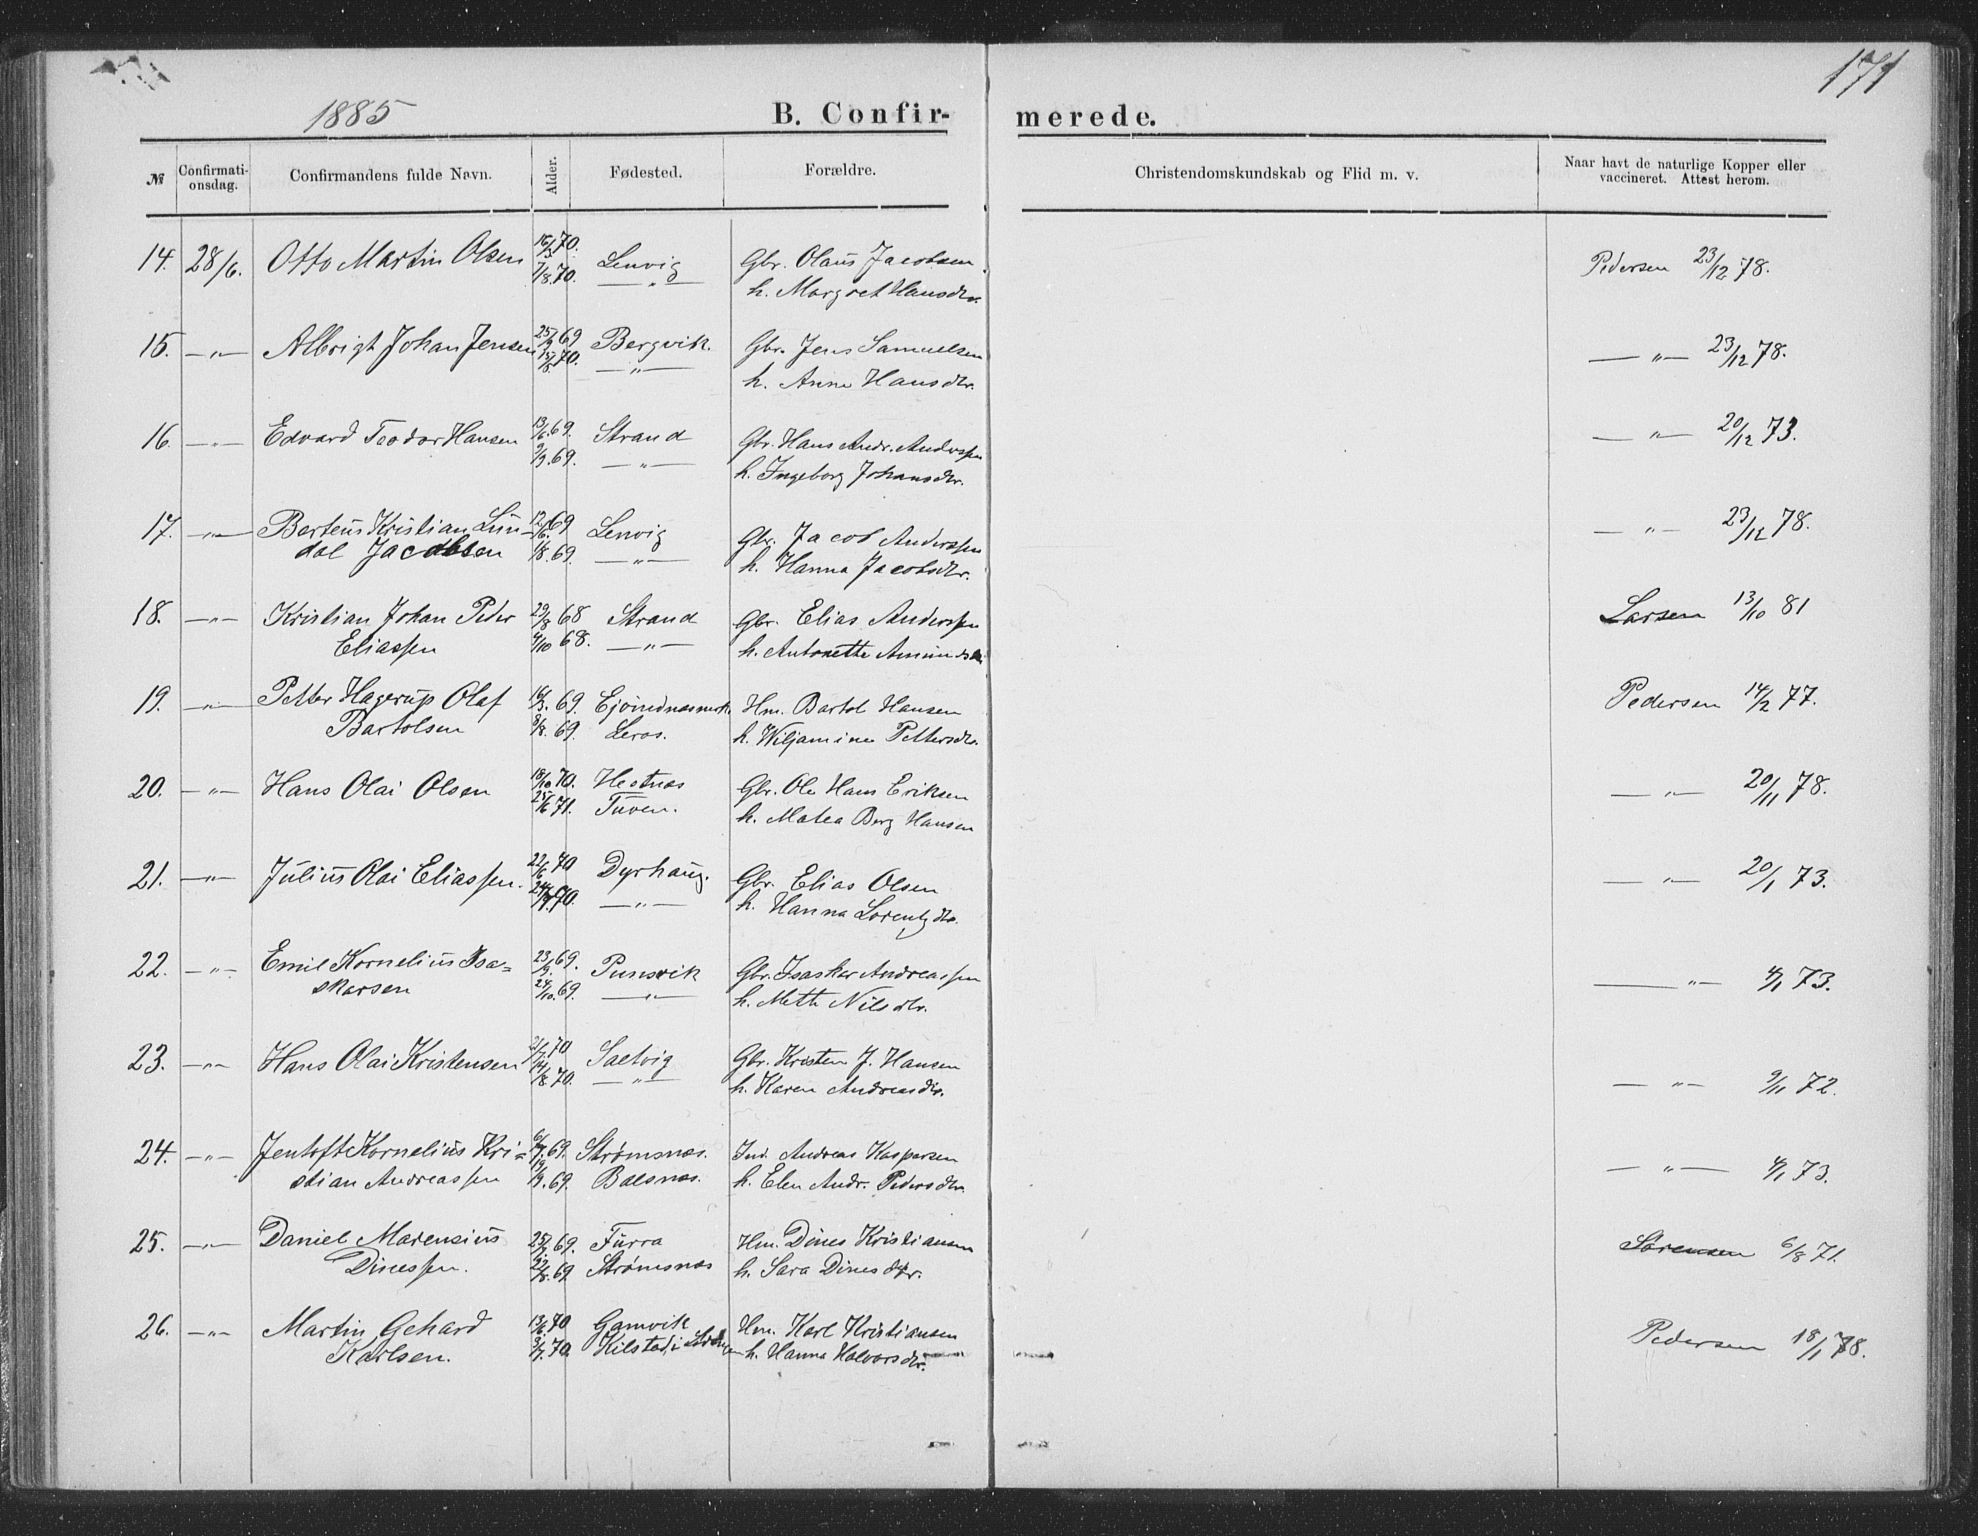 1885
171
B. Confir-
merede.
№
Confirmati-
onsdag.
Confirmandens fulde Navn.
Alder.
Fødested.
Forældre.
Christendomskundskab og Flid m. v.
Naar havt de naturlige Kopper eller
vaccineret. Attest herom.
14. 28/6. Otto Martin Olsen 16/3 70. Lenvig Gbr. Olaus Jacobsen Pedersen 23/12 78.
7/8. 70. —„— h. Margret Hansdtr.
15. —„— Albrigt Johan Jensen 69 Bergvik. Gbr. Jens Samuelsen —„— 23/12 78.
70. —„— h. Anne Hansdtr.
16. —„— Edvard Teodor Hansen 13/6. 69. Strand Gbr. Hans Andr. Anderssen —„— 20/12 73.
9/9. 69. —„— h. Ingeborg Johansdtr.
17. —„— Berteus Kristian Lun- 12/6. 69 Lenvig Gbr. Jacob Anderssen —„— 23/12 78.
dal Jacobsen 1/8 69. —„— h. Hanna Jacobsdtr.
18. —„— Kristian Johan Peder 29/8 68 Strand Gbr. Elias Anderssen Larsen 13/10 81
Eliassen 4/10 68. —„— h. Antonette Amunds
19. —„— Petter Hagerup Olaf 16/3. 69. Hm. Bartol Hansen Pedersen 14/2 77.
Bartolsen 8/8. 69. Leros. h. Wiljamine Pettersdtr.
20. —„— Hans Olai Olsen 18/10 70. Hestnæs Gbr. Ole Hans Eriksen —„— 20/11 78.
25/6 71. Tuven. h. Matea Berg Hansen
21. —„— Julius Olai Eliassen. 22/6 70 Dyrhaug. Gbr. Elias Olsen —„— 20/1 73.
70. —„— h. Hanna Lorentzdtr.
22. —„— Emil Kornelius Isa= 23/9. 69. Punsvik Gbr. Isaskar Andreassen —„— 4/1 73.
skarsen 24/10. 69. —„— h. Mette Nilsdtr.
23. —„— Hans Olai Kristensen 70 Sætvig Gbr. Kristen J. Hansen —„— 9/11 72.
14/8 70. —„— h. Karen Andreasdtr.
24. —„— Jentoft Kornelius Kri= 6/7. 69. Strømsnæs. Ind. Andreas Kaspersen —„— 4/1 73.
stian Andreassen 19/9. 69. Balsnæs. h. Elen Andr. Pedersdtr.
25. —„— Daniel Marensius 69. Furra Hm. Dines Kristiansen Sørensen 6/8 71.
Dinessen. 22/8. 69 Strømsnæs h. Sara Dinesdtr.
26. —„— Martin Gehard 13/6. 70 Gamvik Hm. Karl Kristiansen Pedersen 18/1 78.
Karlsen. 3/7. 70. Kilstad i h. Hanna Halvorsdtr.